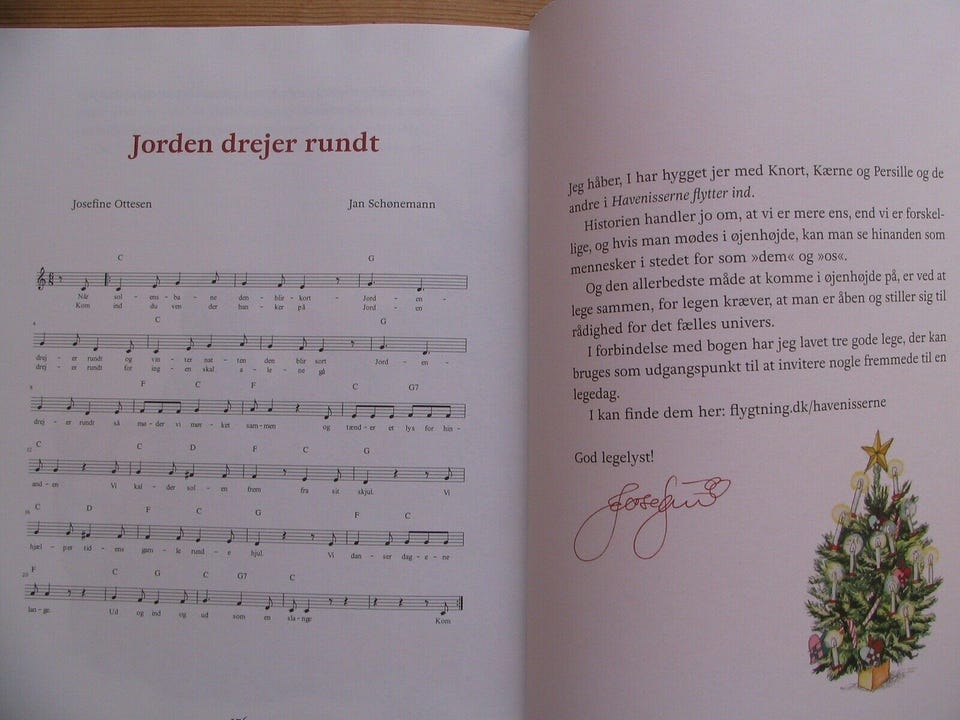 Jorden drejer rundt
Josefine Ottesen
Jan Schønemann
C G
Når sol - ens - ba - ne den - blir - kort - Jord - en -
Kom ind du ven der ban - ker på Jord - en
4
C G
drej - er rundt og vin - ter nat - ten den blir sort Jord - en -
drej - er rundt for ing - en skal a - le - ne gå
8
F C F C G7
drej - er rundt så mø - der vi mør - ket sam - men og tænd - er et lys for hin -
12
C C D F C G
and - en Vi kal - der sol - en frem fra sit skjul. Vi
16
C D F C G F C
hjæl - per tid - ens gam - le rund - e hjul. Vi dan - ser dag - e - ne
20
F C G C G7 C
lan - ge. Ud og ind og ud som en sla - nge Kom
Jeg håber, I har hygget jer med Knort, Kærne og Persille og de
andre i Havenisserne flytter ind.
Historien handler jo om, at vi er mere ens, end vi er forskel-
lige, og hvis man mødes i øjenhøjde, kan man se hinanden som
mennesker i stedet for som »dem« og »os«.
Og den allerbedste måde at komme i øjenhøjde på, er ved at
lege sammen, for legen kræver, at man er åben og stiller sig til
rådighed for det fælles univers.
I forbindelse med bogen har jeg lavet tre gode lege, der kan
bruges som udgangspunkt til at invitere nogle fremmede til en
legedag.
I kan finde dem her: flygtning.dk/havenisserne
God legelyst!
Josefine